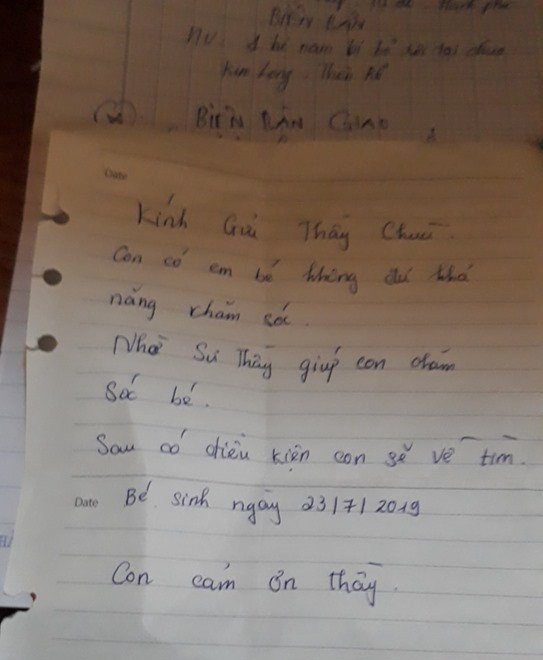 BIÊN BẢN
1 bé nam bị bỏ rơi tại chùa
Kim Long
BIÊN BẢN GIAO
Date
Kính Gửi Thầy Chùa.
Con có em bé không đủ khả
năng chăm sóc.
Nhờ Sư Thầy giúp con chăm
sóc bé.
Sau có điều kiện con sẽ về tìm.
Date Bé sinh ngày 23/7/2019
Con cảm ơn thầy.